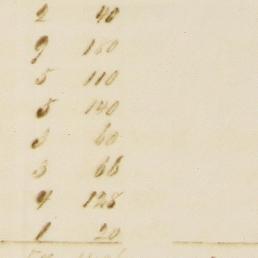 2 40
9 180
5 110
5 140
3 60
3 66
4 128
1 20